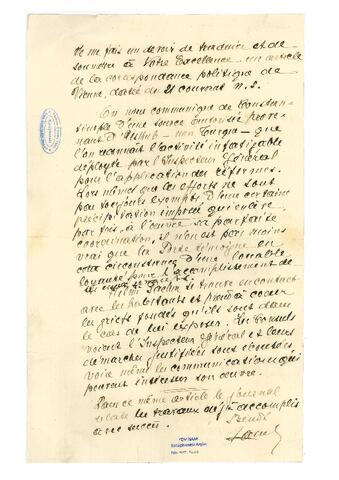 Je me fais un devoir de traduire et de
soumettre à Votre Excellence un article
de la correspondance politique de
Vienne, daté du 21 courant n.s.
On nous communique de Constan-
tinople d'une source autorisée prove-
nant d'Uskub - non Turque - que
l'on connaît l'activité infatigable
déployée par l'Inspecteur Général
pour l'application des réformes.
Lors même que les efforts ne sont
pas toujours exempts d'une certaine
précipitation
parfois, à l'œuvre sa parfaite
coordination, il n'en est pas moins
vrai que la Porte témoigne en
cette circonstance d'une louable
loyauté pour l'accomplissement de
Hilmi Pacha se trouve en contact
avec les habitants et
les griefs fondés qu'ils sont dans
le cas de lui exposer. Les Consuls
voient l'Inspecteur Général et leurs
démarches justifiées sont
voire même les communications qui
peuvent intéresser son œuvre.
Dans ce même article le journal
les travaux déjà accomplis
avec succès.